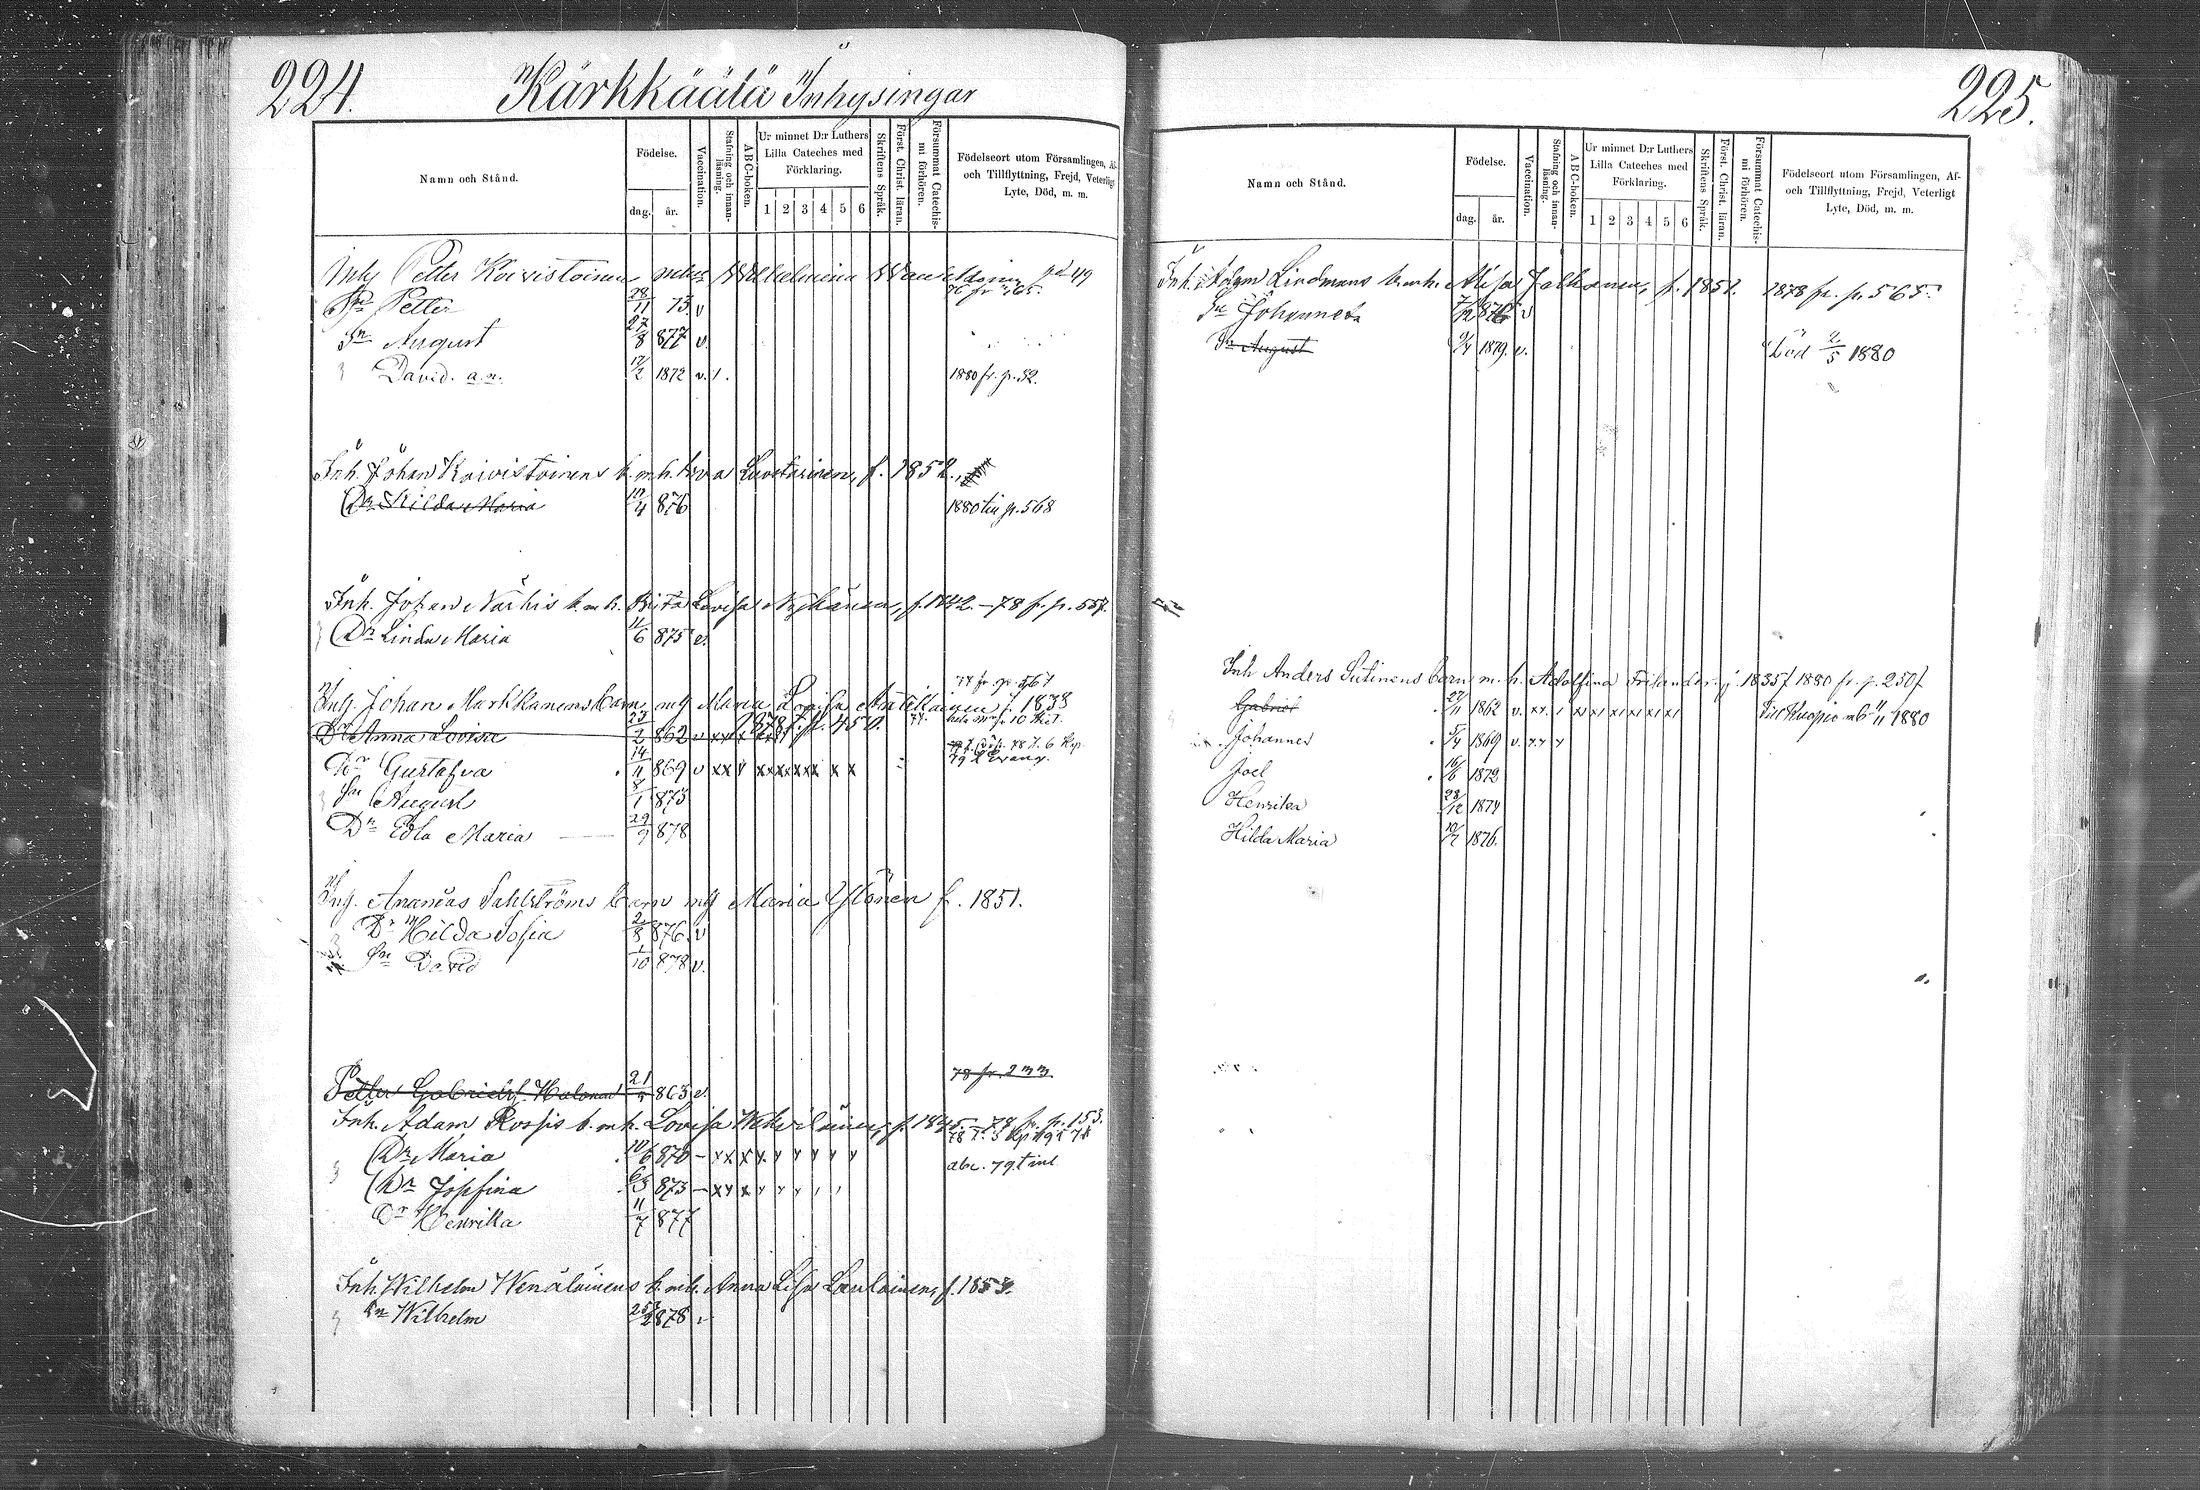 224.
Kärkkäälä Inhysingar
Namn och Stånd.
Födelse.
dag.
år.
Vaccination.
Stafning och innan-
läsning.
ABC-boken.
Ur minnet D:r Luthers
Lilla Cateches med
Förklaring.
1 2 3 4 5 6
Skriftens Språk.
Först. Christ. läran.
Försummat Catechis-
mi förhören.
Födelseort utom Församlingen, Af-
och Tillflyttning, Frejd, Veterligt
Lyte, Död, m. m.
Petter Koivistoinen Wilhelmina
76 fr 765.
Sn Petter 28/11 73 v
Sn August 27/8 877 v.
David. a.n. 12/2 1872 v. 1. 1880 fr. p. 52.
Inh. Johan Koivistoinens b. m. h. Eva f. 1852.
Dr Hilda Maria 10/4 876 1880 till p. 568
Inh. Johan Närhis b. m. h. Brita Lovisa Nykänen, f. 1842. –78 f. p. 557.
Dr Linda Maria 11/6 875 v.
77 fr. p. 567
Inh. Johan Markkanens barn mg Maria Lovisa f. 1838
Dr Anna Lovisa 23/2 862 v
Dr Gustafva 14/11 869 v xx x xxxxxx x x
Sn August 8/1 873
Dr Edla Maria 29/9 878
Ing. Ananias Sahlströms barn mg Maria Ylönen f. 1851.
Dr Hilda Sofia 2/8 876. v
Sn David 1/10 878 v.
78 fr. 233
Petter Gabrielss. Halonen 21/5 863 v.
Inh. Adam Rossis b. m. h. Lovisa fr. p. 153.
Dr Maria 10/6 870
abc. 79. t inl
Dr Josefina 6/3 873
Dr Henrika 11/7 877
Inh. Wilhelm Wenäläinens b. m. h. Anna Lisa Laulainen, f. 1853.
Sn Wilhelm 25/2 878
225.
Namn och Stånd.
Födelse.
dag.
år.
Vaccination.
Stafning och innan-
läsning.
ABC-boken.
Ur minnet D:r Luthers
Lilla Cateches med
Förklaring.
1 2 3 4 5 6
Skriftens Språk.
Först. Christ. läran.
Försummat Catechis-
mi förhören.
Födelseort utom Församlingen, Af-
och Tillflyttning, Frejd, Veterligt
Lyte, Död, m. m.
Inh. Adam Lindmans b. m. h. Alisa Jalkanen, f. 1851. 1878 fr. p. 565.
Sn Johannes 7/12 876 v
Sn August 9/4 1879. v. Död 2/5 1880
Inh Anders Sutinens barn m. h. Adolfina Frilander f. 1835 1880 fr. p. 250
Gabriel 27/11 1862 v. till Kuopio 1880
Johannes 5/4 1869 v. x x x
Joel 16/6 1872
Henrika 28/12 1874
Hilda Maria 10/7 1876.